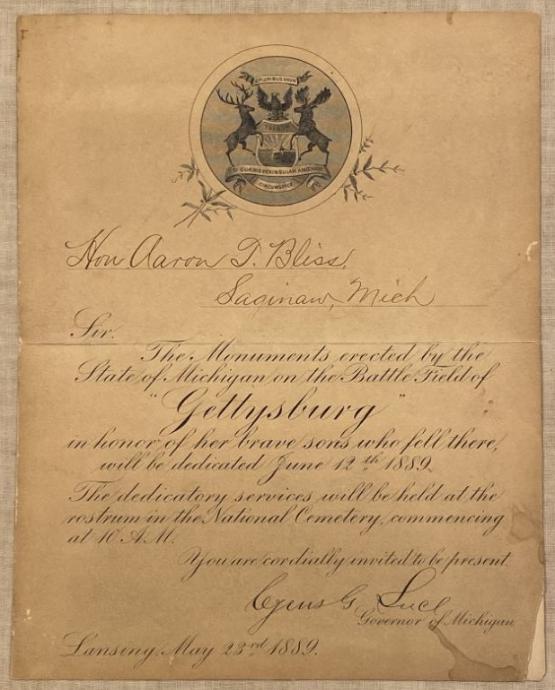 E PLURIBUS UNUM
TUEBOR
SI QUAERIS PENINSULAM AMOENAM
CIRCUMSPICE
Hon Aaron T. Bliss,
Saginaw, Mich
Sir.
The Monuments erected by the
State of Michigan on the Battle Field of
"Gettysburg"
in honor of her brave sons who fell there,
will be dedicated June 12th 1889.
The dedicatory services will be held at the
rostrum in the National Cemetery, commencing
at 10 A.M.
You are cordially invited to be present.
Cyrus G. Luce
Governor of Michigan
Lansing, May 23rd 1889.